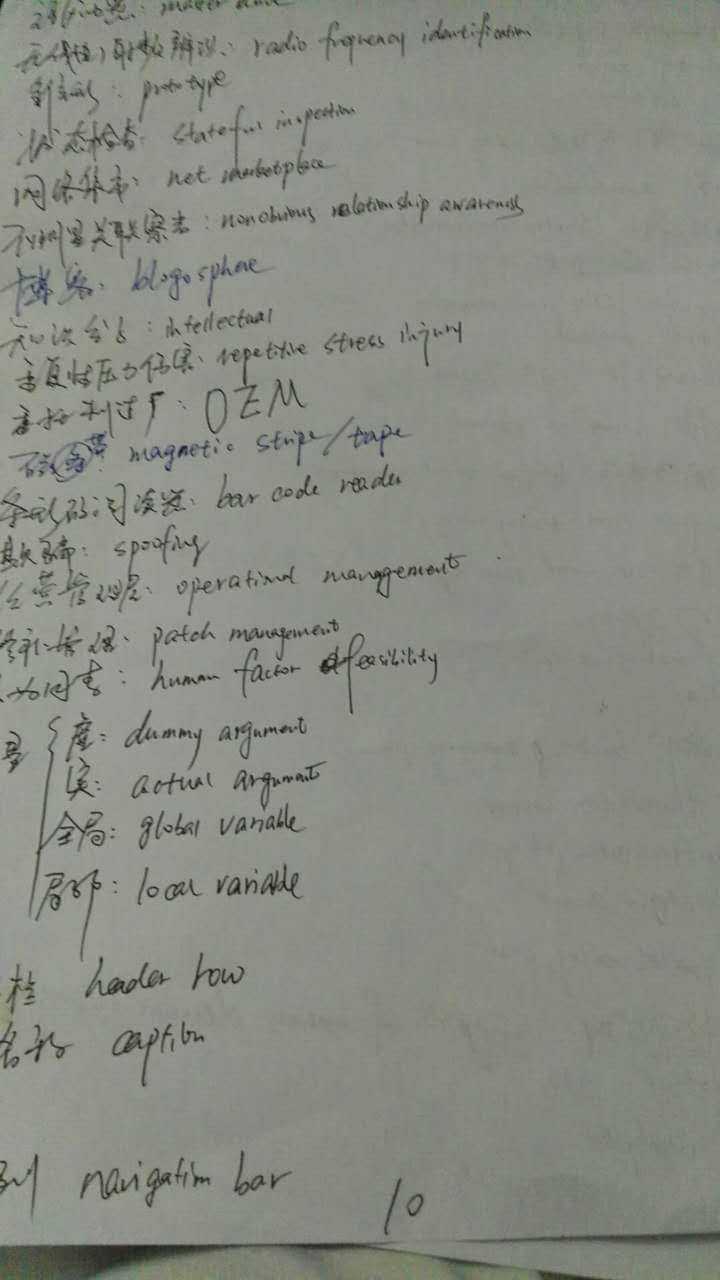 : master
无线电射频辨识: radio frequency identification
: prototype
状态检查: stateful inspection
网络集市: net marketplace
不明显关联察觉: nonobvious relationship awareness
博客: blogosphere
知识分子: intellectual
重复性压力伤害: repetitive stress injury
: OEM
磁条/带: magnetic stripe/tape
条形码阅读器: bar code reader
欺骗: spoofing
营管理层: operational management
管理: patch management
为因素: human factor feasibility
量 虚: dummy argument
实: actual argument
全局: global variable
局部: local variable
栏 header row
名称 caption
列 navigation bar
10